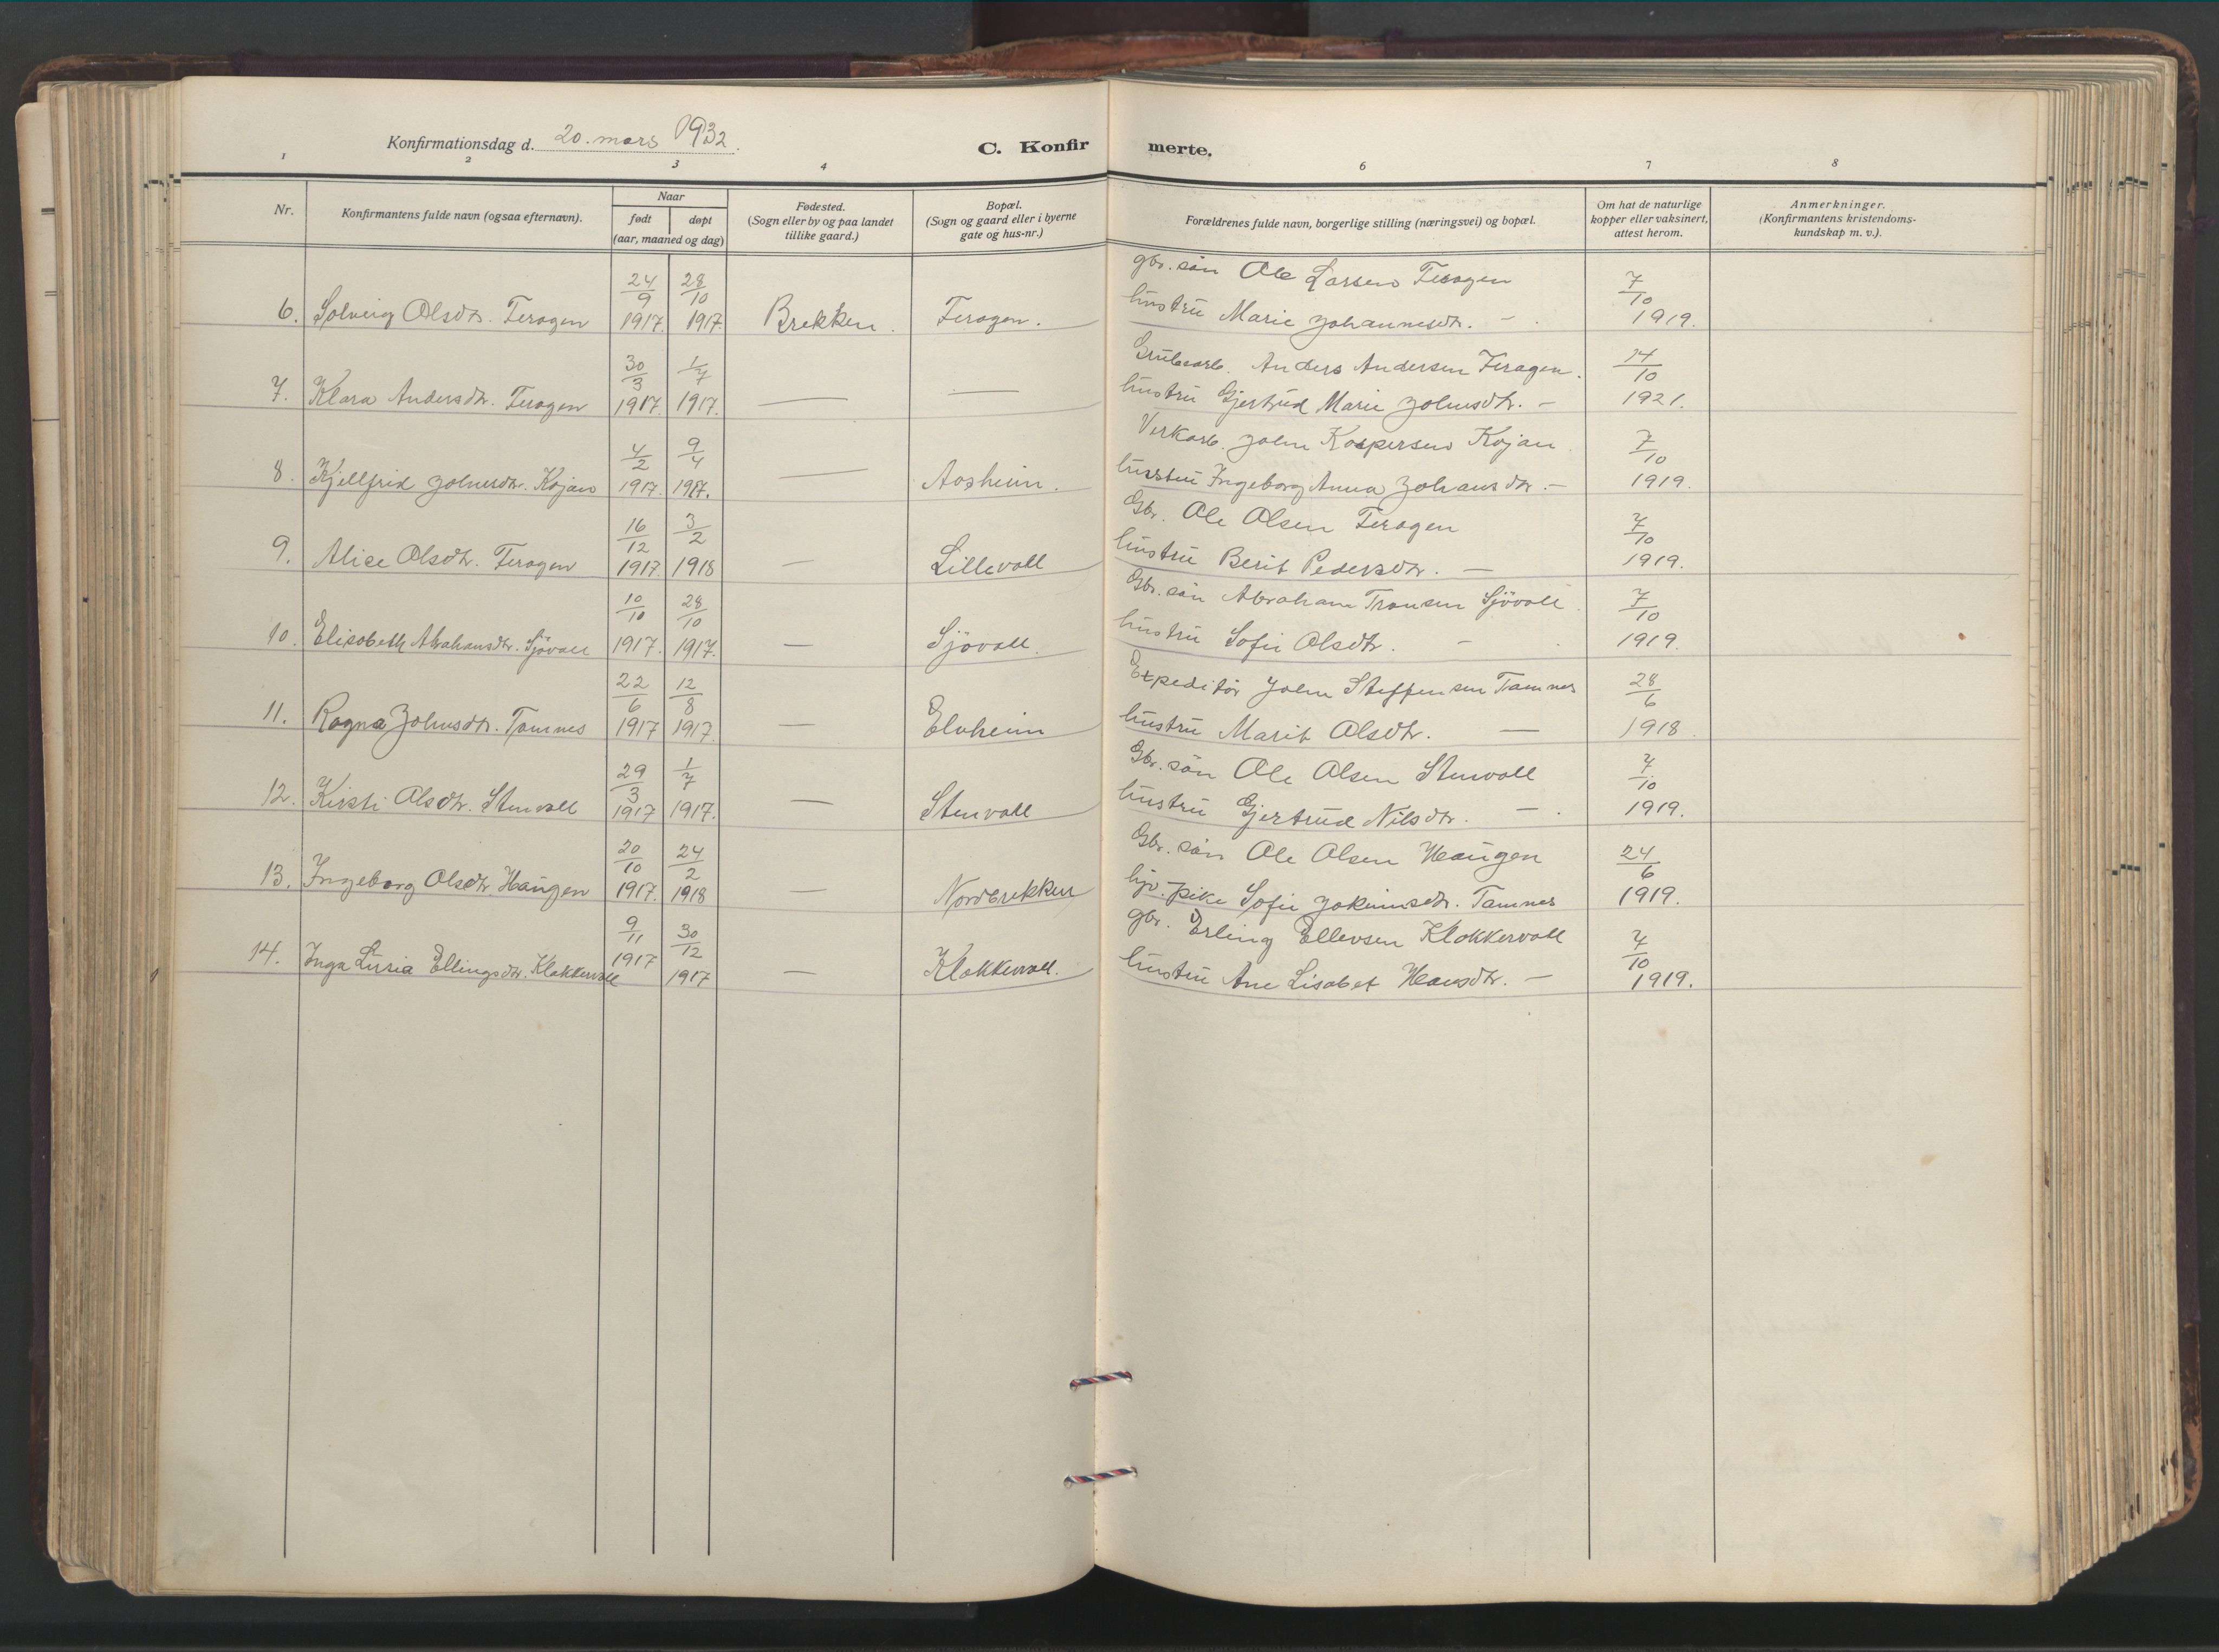 Konfirmationsdag d. 20. mars 1932.
C. Konfirmerte.
1 2 3 4 6 7 8
Nr.
Konfirmantens fulde navn (ogsaa efternavn).
Naar
født døpt
(aar, maaned og dag)
Fødested.
(Sogn eller by og paa landet
tillike gaard.)
Bopæl.
(Sogn og gaard eller i byerne
gate og hus-nr.)
Forældrenes fulde navn, borgerlige stilling (næringsvei) og bopæl.
Om hat de naturlige
kopper eller vaksinert,
attest herom.
Anmerkninger.
(Konfirmantens kristendoms-
kundskap m. v.).
24/9 28/10 gbr. sön Ole Larsen Feragen 7/10
6. Solveig Olsdtr. Feragen 1917. 1917. Brekken. Feragen. hustru Marie Johannesdtr. - 1919.
30/3 1/7 Grubearb. Anders Andersen Feragen. 14/10
7. Klara Andersdtr. Feragen 1917. 1917. — — hustru Gjertrud Marie Johnsdtr. - 1921.
4/2 9/4 Verkarb. John Kaspersen Kojan 7/10
8. Kjellfrid Johnsdtr. Kojan 1917. 1917. — Aasheim. hustru Ingeborg Anna Johansdtr. - 1919.
16/12 3/2 Gbr. Ole Olsen Feragen 7/10
9. Alice Olsdtr. Feragen 1917. 1918 — Lillevoll hustru Berit Pedersdtr. — 1919.
10/10 28/10 Gbr. sön Abraham Tronsen Sjövoll 7/10
10. Elisabeth Abrahamsdtr. Sjövoll 1917. 1917. — Sjövoll. hustru Sofie Olsdtr. - 1919.
22/6 12/8 Expeditör John Steffensen Tamnes 28/6
11. Ragna Johnsdtr. Tamnes 1917 1917. — Elvheim hustru Marit Olsdtr. — 1918.
29/3 1/7 Gbr. sön Ole Olsen Stenvoll 7/10
12. Kirsti Olsdtr. Stenvoll 1917 1917. — Stenvoll hustru Gjertrud Nilsdtr. - 1919.
20/10 24/2 Gbr. sön Ole Olsen Haugen 24/6
13. Ingeborg Olsdtr. Haugen 1917. 1918 — Nordbrekken pike Sofie Jokumsdtr. Tamnes 1919.
9/11 30/12 gbr. Erling Ellevsen Klokkervoll 7/10
14. Inga Luisa Ellingsdtr. Klokkervoll 1917 1917 — Klokkervoll. hustru Ane Lisabet Hansdtr. - 1919.